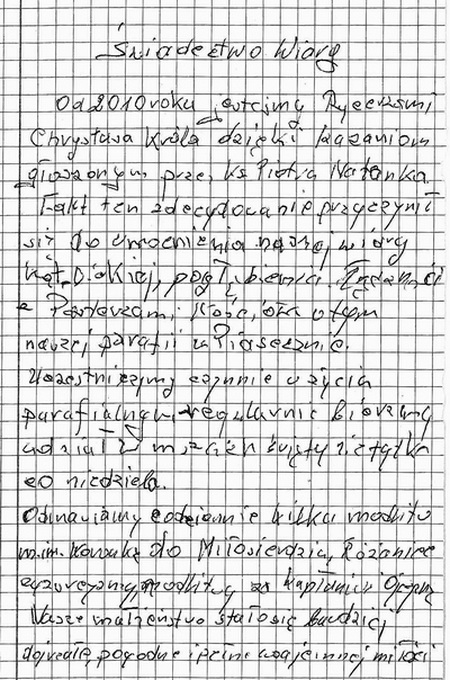 Świadectwo Wiary
Od 2010 roku jesteśmy Rycerzami
Chrystusa Króla dzięki kazaniom
głoszonym przez ks Piotra Natanka.
Fakt ten zdecydowanie przyczynił
się do umocnienia naszej wiary
z Pasterzami Kościoła w tym
naszej parafii w Piasecznie.
Uczestniczymy czynnie w życiu
parafialnym regularnie bierzemy
udział w mszach świętych nie tylko
co niedziela.
Odmawiamy codziennie kilka modlitw
m.in. Koronkę do Miłosierdzia, Różaniec
modlitwę za kapłanów i Ojczyznę
Nasze małżeństwo stało się bardziej
dojrzałe, pogodne i pełne wzajemnej miłości